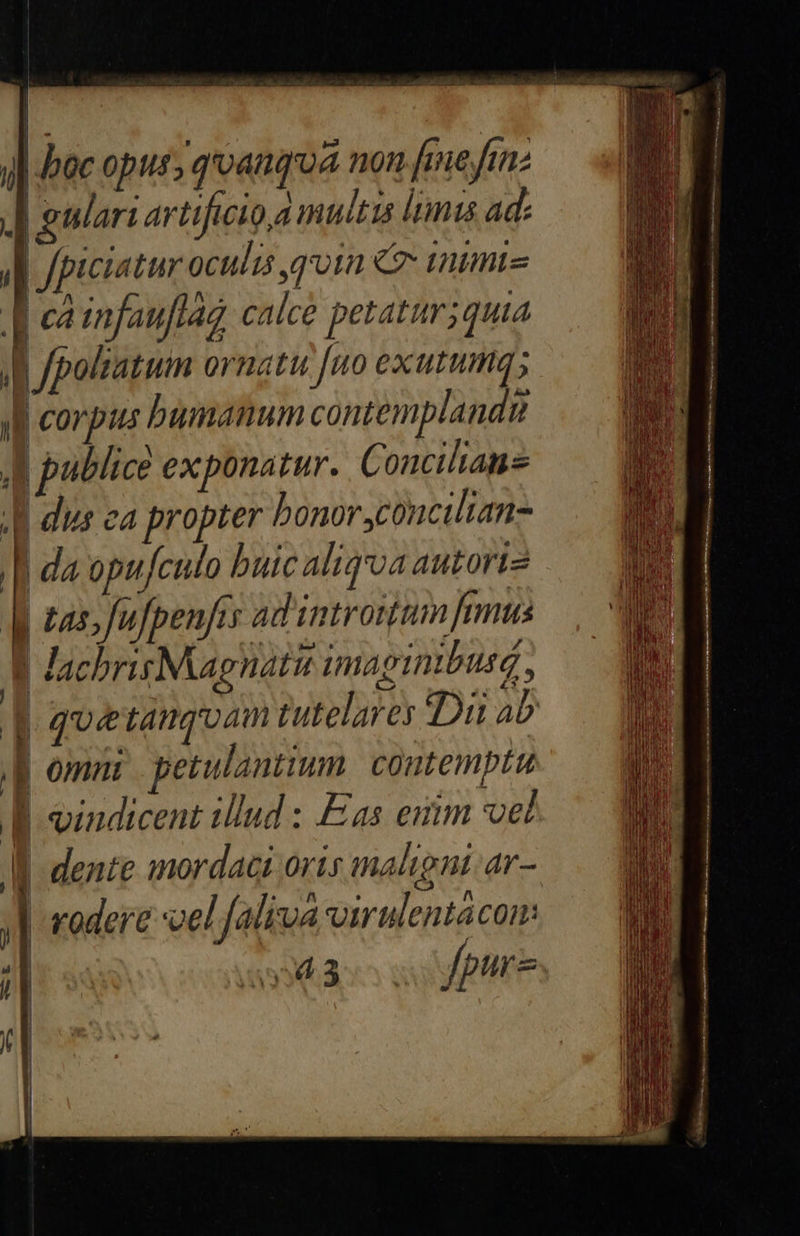 hoc opus, qvanqvã non sine sin=
gulari artificio, à multis limis ad=
spiciatur oculis, qvin & inimi=
cà infaustaq́; calce petatur; quia
spoliatum ornatu suo exutumq;
corpus humanum contemplandũ
publicè exponatur. Concilian=
dus ea propter honor, concilian-
da opusculo huic aliqva autori=
tas, suspensis ad introitum simus
lachris Magnatũ imaginibusq́;,
qvæ tanqvam tutelares Dii ab
omni petulantium contemptu
vindicent illud: Eas enim vel
dente mordaci oris maligni ar-
rodere vel salivâ virulentâ con=
a 3 spur=